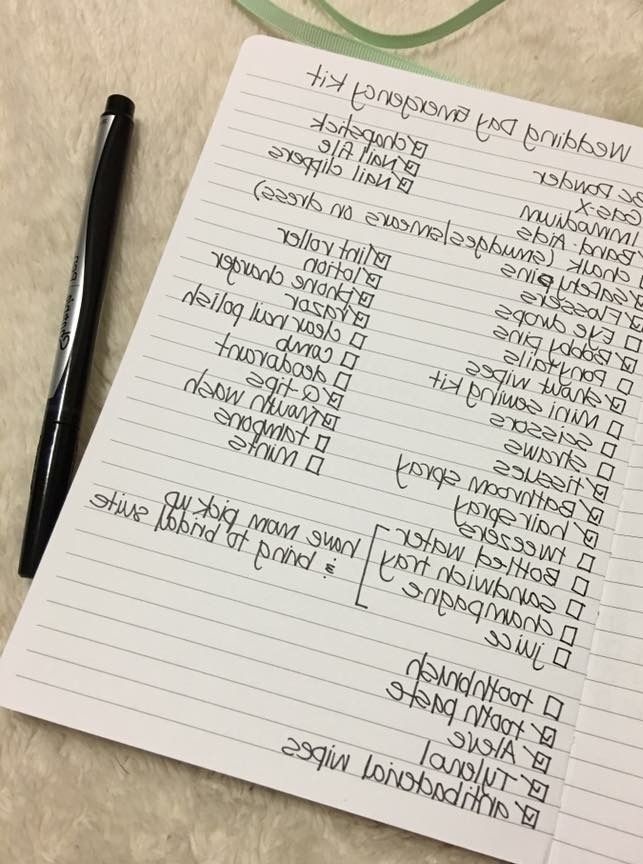 Wedding Day Emergency Kit
BC Powder
Gas-X
Immodium
Band-Aids
chalk (smudges/smears on dress)
safety pins
Flossers
Eye drops
Bobby pins
Ponytails
shout wipes
mini sewing kit
scissors
straws
tissues
Bathroom spray
hairspray
tweezers
Bottled water
sandwich tray
champagne
juice
have mom pick up
& bring to bridal suite
toothbrush
tooth paste
Aleve
Tylenol
antibacterial wipes
chapstick
nail file
nail clippers
lint roller
lotion
phone charger
razor
clear nail polish
comb
deodorant
Q-tips
mouth wash
tampons
mints